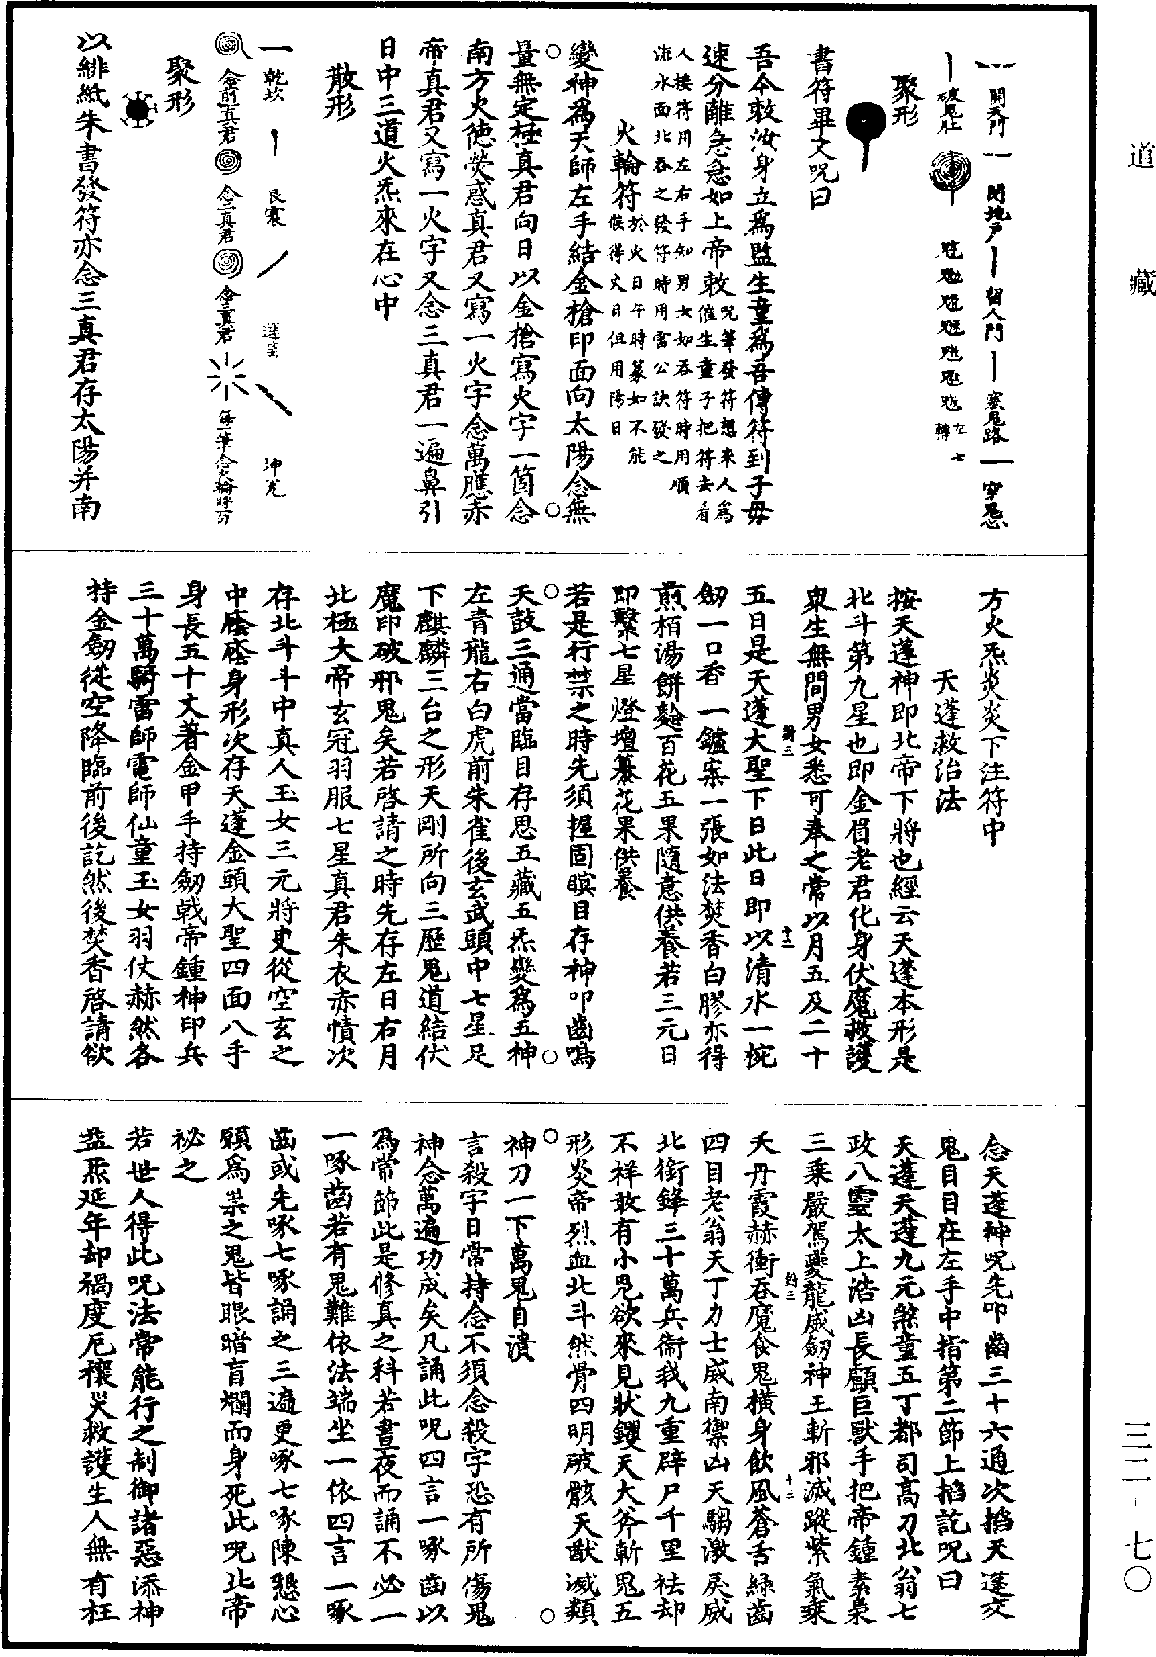 道藏
三二-七〇
丨開天門 丨閉地戶 丨留人門 丨塞鬼路 丨穿鬼
丨破鬼肚 左轉七
聚形
書符畢又呪曰
吾今敕汝身立爲監生童爲吾傳符到子母
速分離急急如上帝敕呪筆發符想來人爲催生童子把符去看
人接符用左右手知男女如吞符時用順流水面北吞之發符時用雷公訣發之
火輪符於火日午時篆如不能候得火日但用陽日
變神爲天師左手結金槍印面向太陽念無
量無定極真君向日以金槍寫火字一箇念
南方火德熒惑真君又寫一火字念萬應赤
帝真君又寫一火字又念三真君一遍鼻引
日中三道火炁來在心中
散形
乾坎 艮震 巽 坤兌
念前真君 念三真君 念三真君 每一筆念火輪
聚形
以緋紙朱書發符亦念三真君存太陽并南
方火炁炎炎下注符中
天蓬救治法
按天蓬神即北帝下將也經云天蓬本形是
北斗第九星也即金眉老君化身伏魔救護
衆生無問男女悉可奉之常以月五及二十
五日是天蓬大聖下日此日即以清水一椀
劒一口香一鑪案一張如法焚香白膠亦得
煎栢湯餅餤百花五果隨意供養若三元日
即繫七星燈壇纂花果供養
若是行禁之時先須握固瞑目存神叩齒鳴
天鼓三通當臨目存思五藏五炁變爲五神
左青龍右白虎前朱雀後玄武頭中七星足
下麒麟三台之形天剛所向三歷鬼道結伏
魔印破邪鬼矣若啓請之時先存左日右月
北極大帝玄冠羽服七星真君朱衣赤幘次
存北斗斗中真人玉女三元將吏從空玄之
中隱隱身形次存天蓬金頭大聖四面八手
身長五十丈著金甲手持劒戟帝鍾神印兵
三十萬騎雷師電師仙童玉女羽仗赫然各
持金劒從空降臨前後訖然後焚香啓請欲
念天蓬神呪先叩齒三十六通次掐天蓬交
鬼目目在左手中指第二節上掐訖呪曰
天蓬天蓬九元煞童五丁都司高刀北翁七
政八靈太上浩凶長顱巨獸手把帝鍾素梟
三乘嚴駕夔龍威劒神王斬邪滅蹤紫氣乘
天丹霞赫衝吞魔食鬼橫身飲風蒼舌綠齒
四目老翁天丁力士威南禦凶天騶激戾威
北銜鋒三十萬兵衞我九重辟尸千里袪却
不祥敢有小鬼欲來見狀钁天大斧斬鬼五
形炎帝烈血北斗然骨四明破骸天猷滅類
神刀一下萬鬼自潰
言殺字日常持念不須念殺字恐有所傷鬼
神念萬遍功成矣凡誦此呪四言一啄齒以
爲常節此是修真之科若晝夜而誦不必一
一啄齒若有鬼難依法端坐一依四言一啄
齒或先啄七啄誦之三遍更啄七啄陳懇心
願爲禁之鬼皆眼暗盲爛而身死此呪北帝
祕之
若世人得此呪法常能行之制御諸惡添神
益炁延年却禍度厄穰災救護生人無有枉